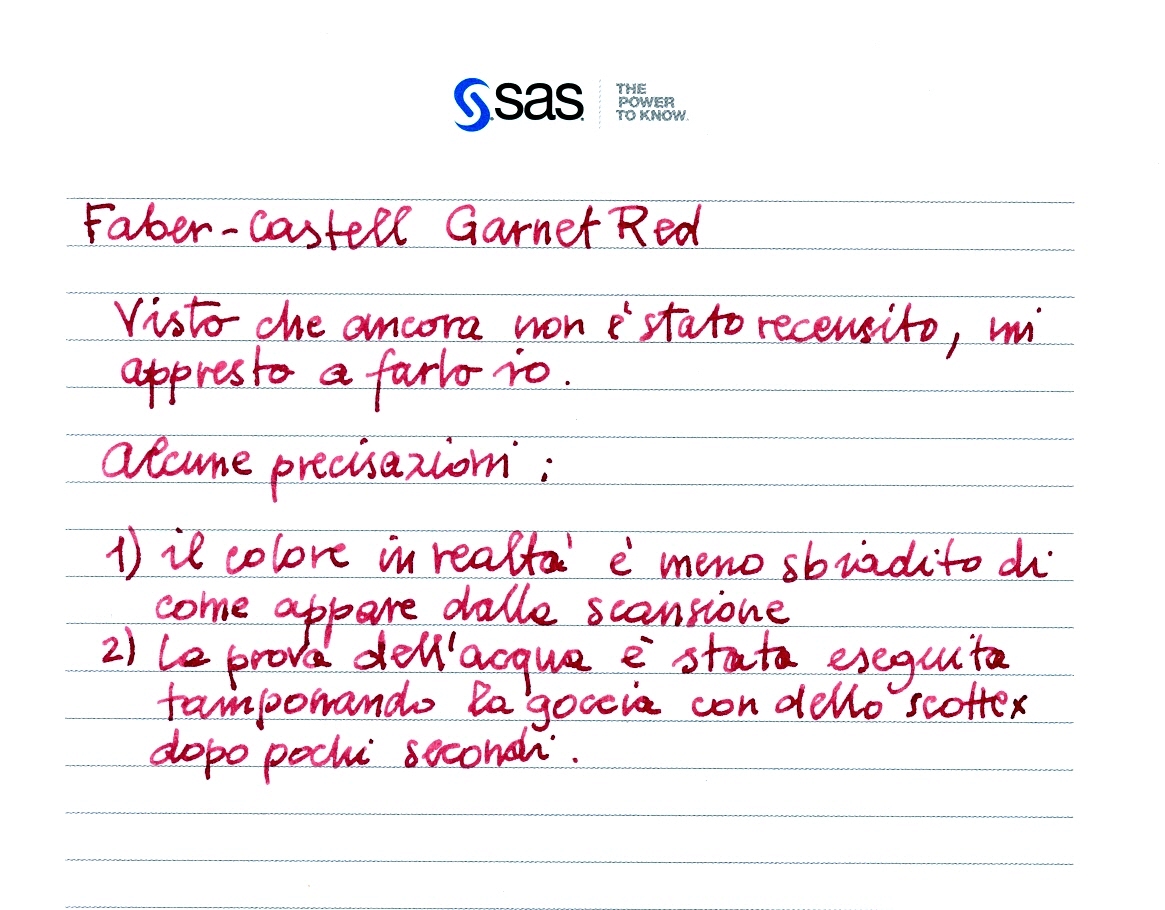 sas
THE
POWER
TO KNOW.
Faber-Castell Garnet Red
Visto che ancora non è stato recensito, mi
appresto a farlo io.
Alcune precisazioni:
1) il colore in realtà è meno sbiadito di
come appare dalla scansione
2) La prova dell'acqua è stata eseguita
tamponando la goccia con dello scottex
dopo pochi secondi.